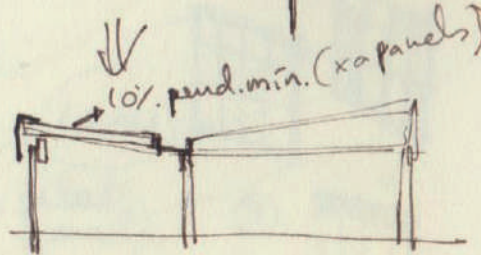 10%. pend. mín. (x a panels)